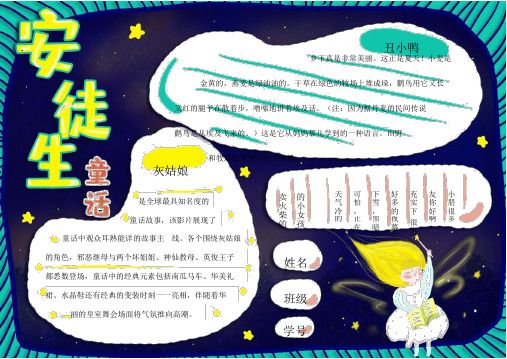 安徒生
童话
丑小鸭
乡下真是非常美丽。这正是夏天!小麦是
金黄的,燕麦是绿油油的。干草在绿色的牧场上堆成垛,鹳鸟用它又长
又红的腿子在散着步,噜嗦地讲着埃及话。(注:因为据丹麦的民间传说
鹳鸟是从埃及飞来的。)这是它从妈妈那儿学到的一种语言。田野
和牧场的
灰姑娘
是全球最具知名度的
童话故事,该影片展现了
童话中观众耳熟能详的故事主 线,各个围绕灰姑娘
的角色,邪恶继母与两个坏姐姐,神仙教母、英俊王子
都悉数登场,童话中的经典元素包括南瓜马车、华美礼
裙、水晶鞋还有经典的变装时刻——亮相,伴随着华
丽的皇室舞会场面将气氛推向高潮。
小朋很多
友你好啊
充实下很
好多的夜幕
下雪,黑暗
可怕,止在
天气冷的
的小女孩
卖火柴的
姓名
班级
学号